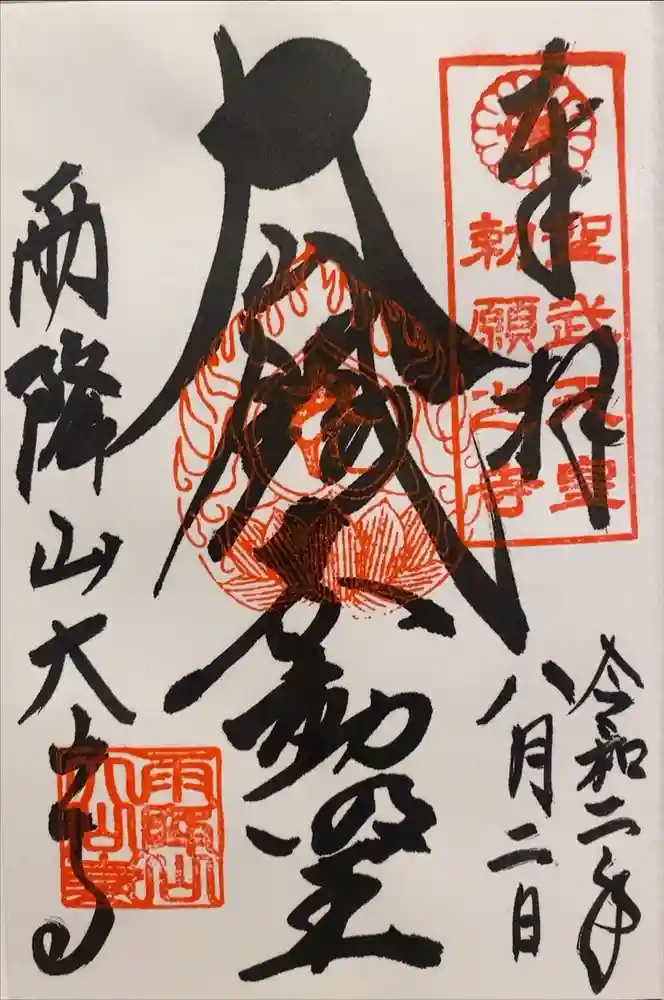 奉拝
聖武天皇
勅願之寺
令和二年
八月二日
不動明王
雨降山大山寺
雨降山
大山寺